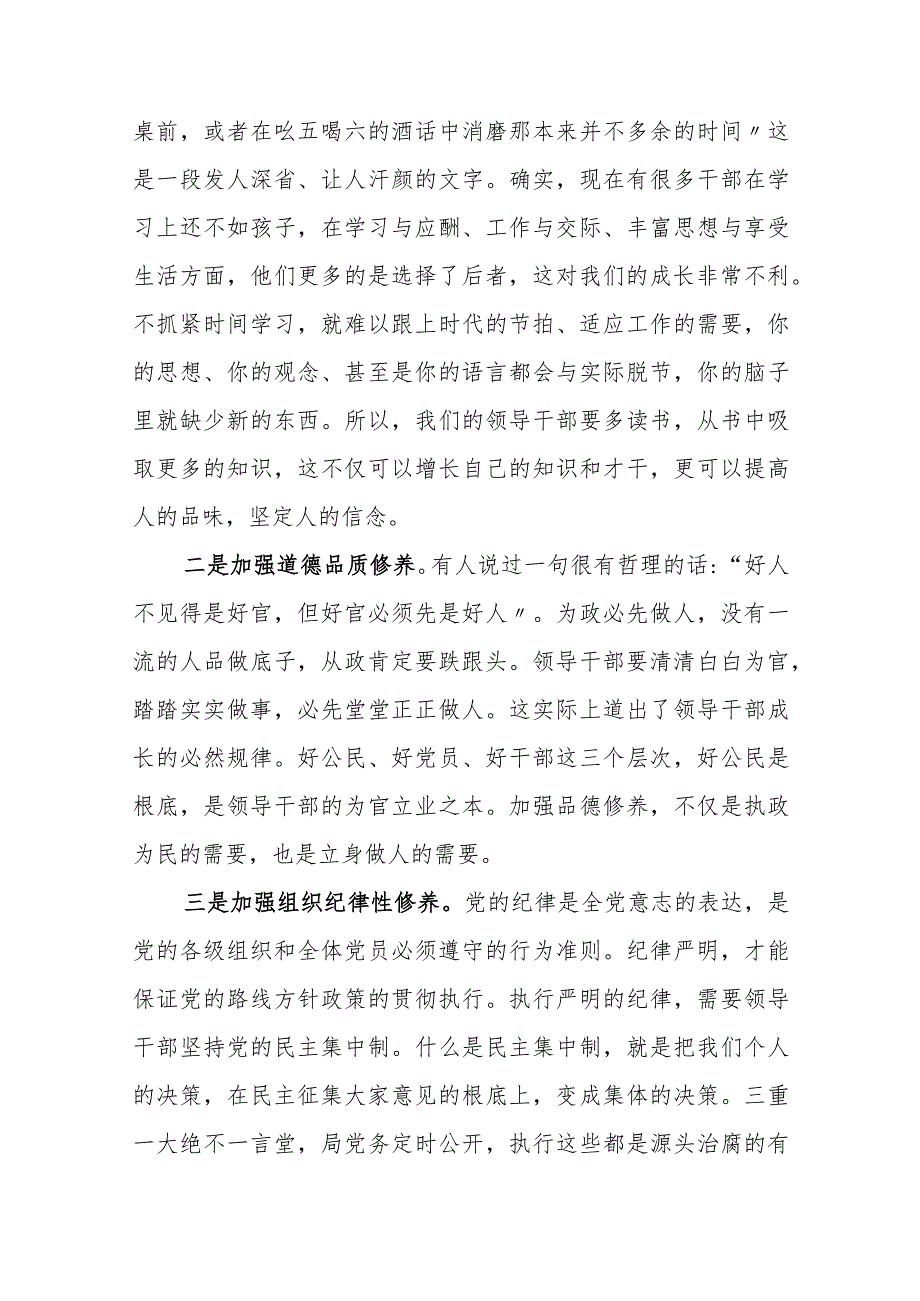 桌前，或者在吆五喝六的酒话中消磨那本来并不多余的时间〃这
是一段发人深省、让人汗颜的文字。确实，现在有很多干部在学
习上还不如孩子，在学习与应酬、工作与交际、丰富思想与享受
生活方面，他们更多的是选择了后者，这对我们的成长非常不利。
不抓紧时间学习，就难以跟上时代的节拍、适应工作的需要，你
的思想、你的观念、甚至是你的语言都会与实际脱节，你的脑子
里就缺少新的东西。所以，我们的领导干部要多读书，从书中吸
取更多的知识，这不仅可以增长自己的知识和才干，更可以提高
人的品味，坚定人的信念。
二是加强道德品质修养。有人说过一句很有哲理的话：“好人
不见得是好官，但好官必须先是好人〃。为政必先做人，没有一
流的人品做底子，从政肯定要跌跟头。领导干部要清清白白为官，
踏踏实实做事，必先堂堂正正做人。这实际上道出了领导干部成
长的必然规律。好公民、好党员、好干部这三个层次，好公民是
根底，是领导干部的为官立业之本。加强品德修养，不仅是执政
为民的需要，也是立身做人的需要。
三是加强组织纪律性修养。党的纪律是全党意志的表达，是
党的各级组织和全体党员必须遵守的行为准则。纪律严明，才能
保证党的路线方针政策的贯彻执行。执行严明的纪律，需要领导
干部坚持党的民主集中制。什么是民主集中制，就是把我们个人
的决策，在民主征集大家意见的根底上，变成集体的决策。三重
一大绝不一言堂，局党务定时公开，执行这些都是源头治腐的有